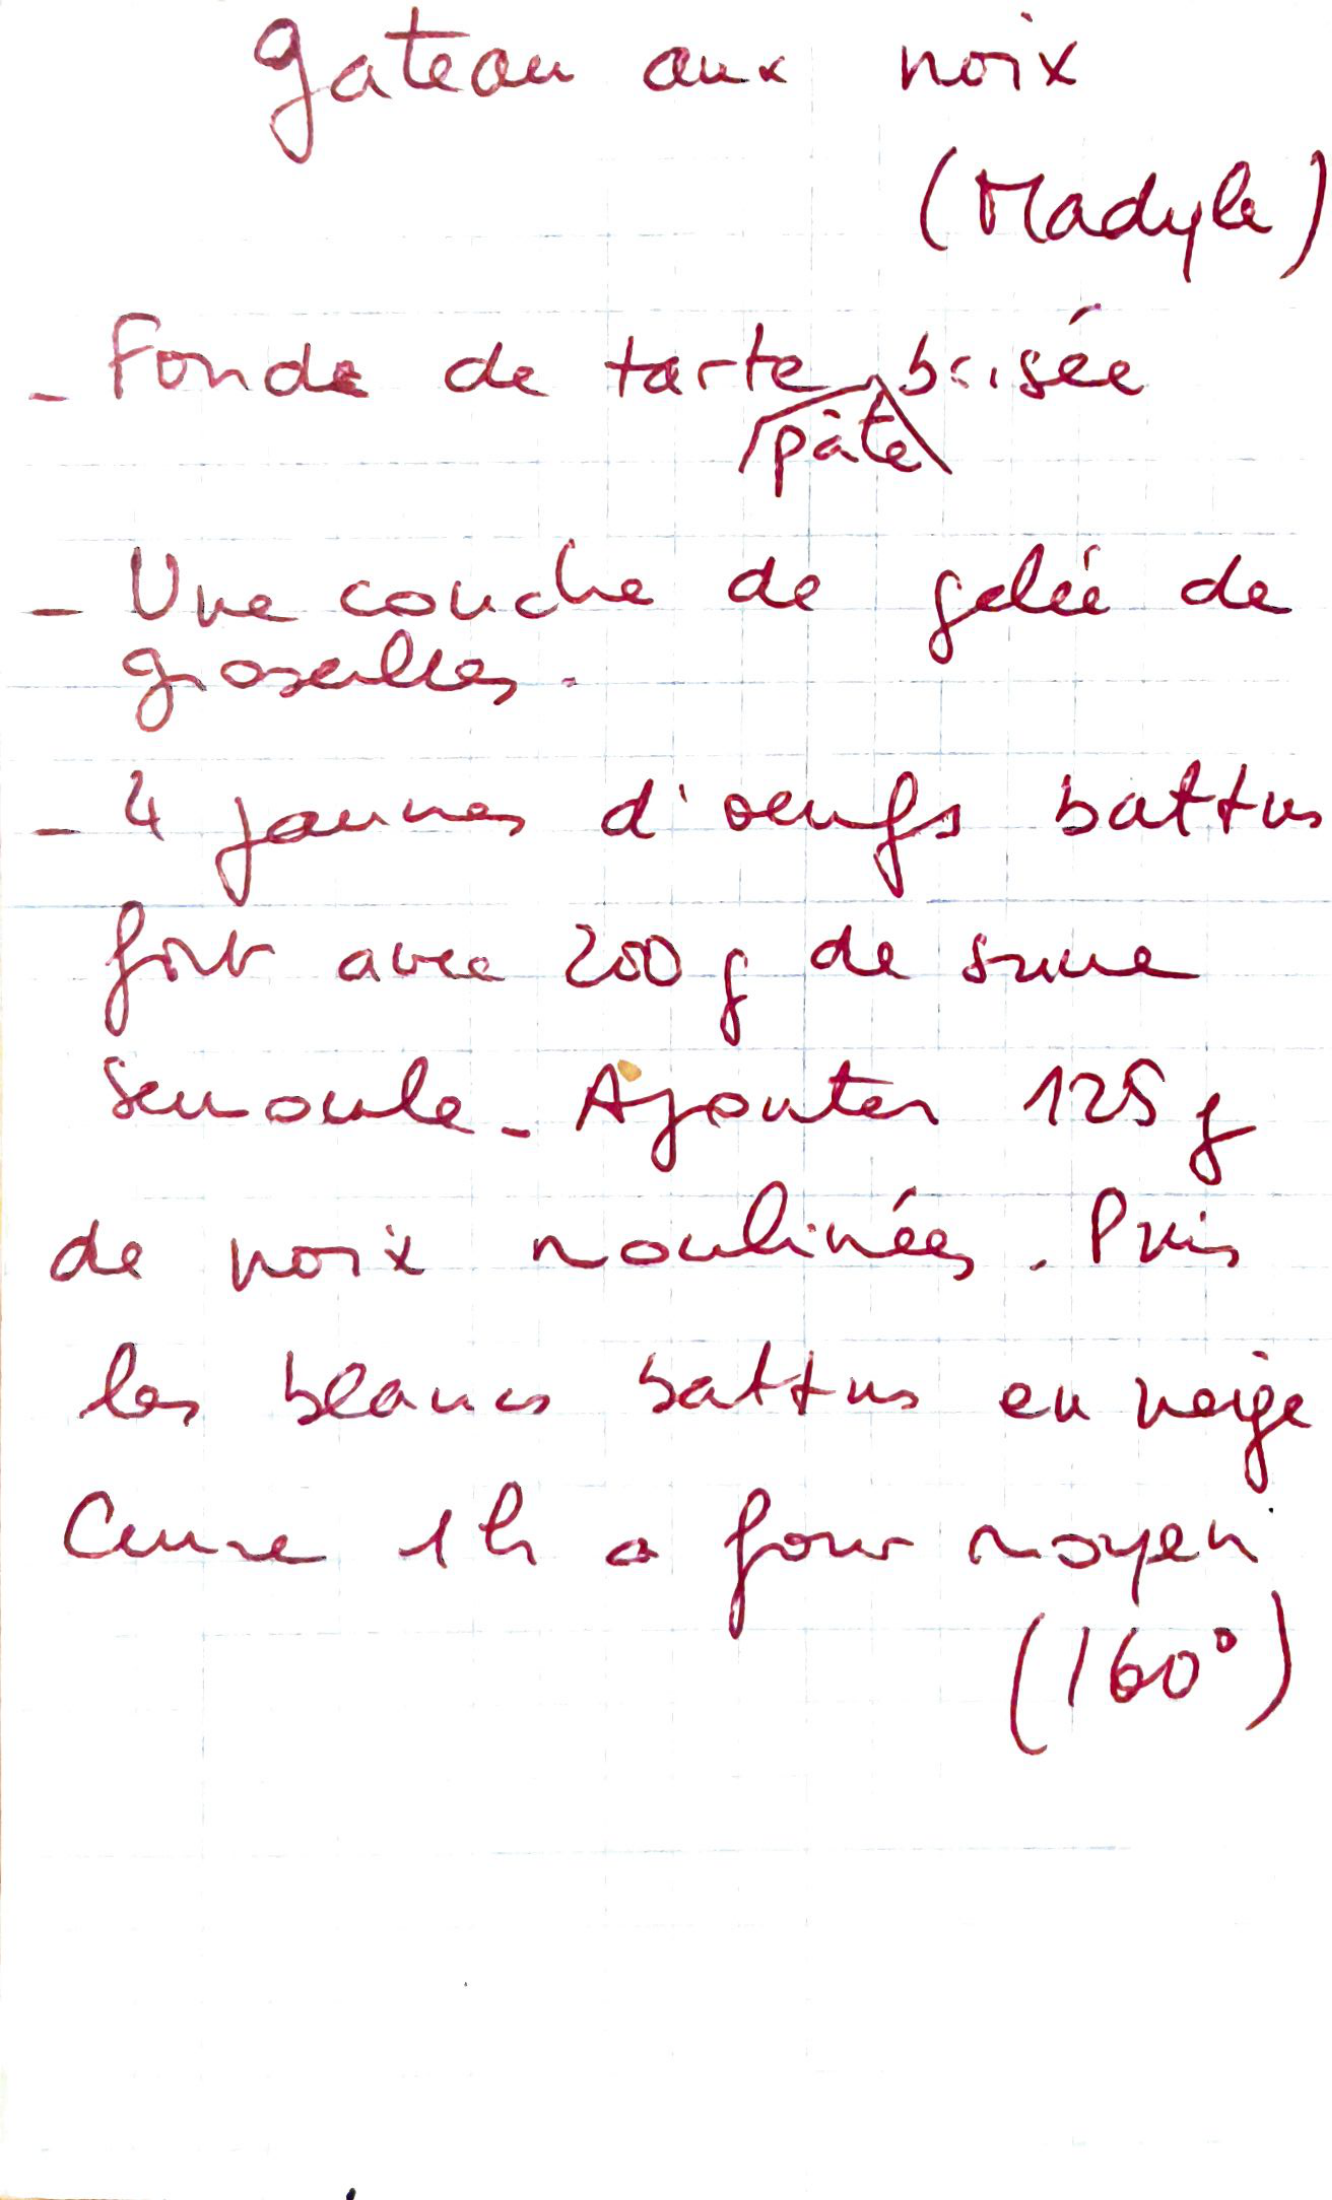 gateau aux noix
(Madyle)
- Fonde de tarte pâte brisée
- Une couche de gelée de
groseilles.
- 4 jaunes d'oeufs battus
fort avec 200 g de sucre
semoule - Ajouter 125 g
de noix moulinées. Puis
les blancs battus en neige
Cuire 1h a four moyen
(160°)